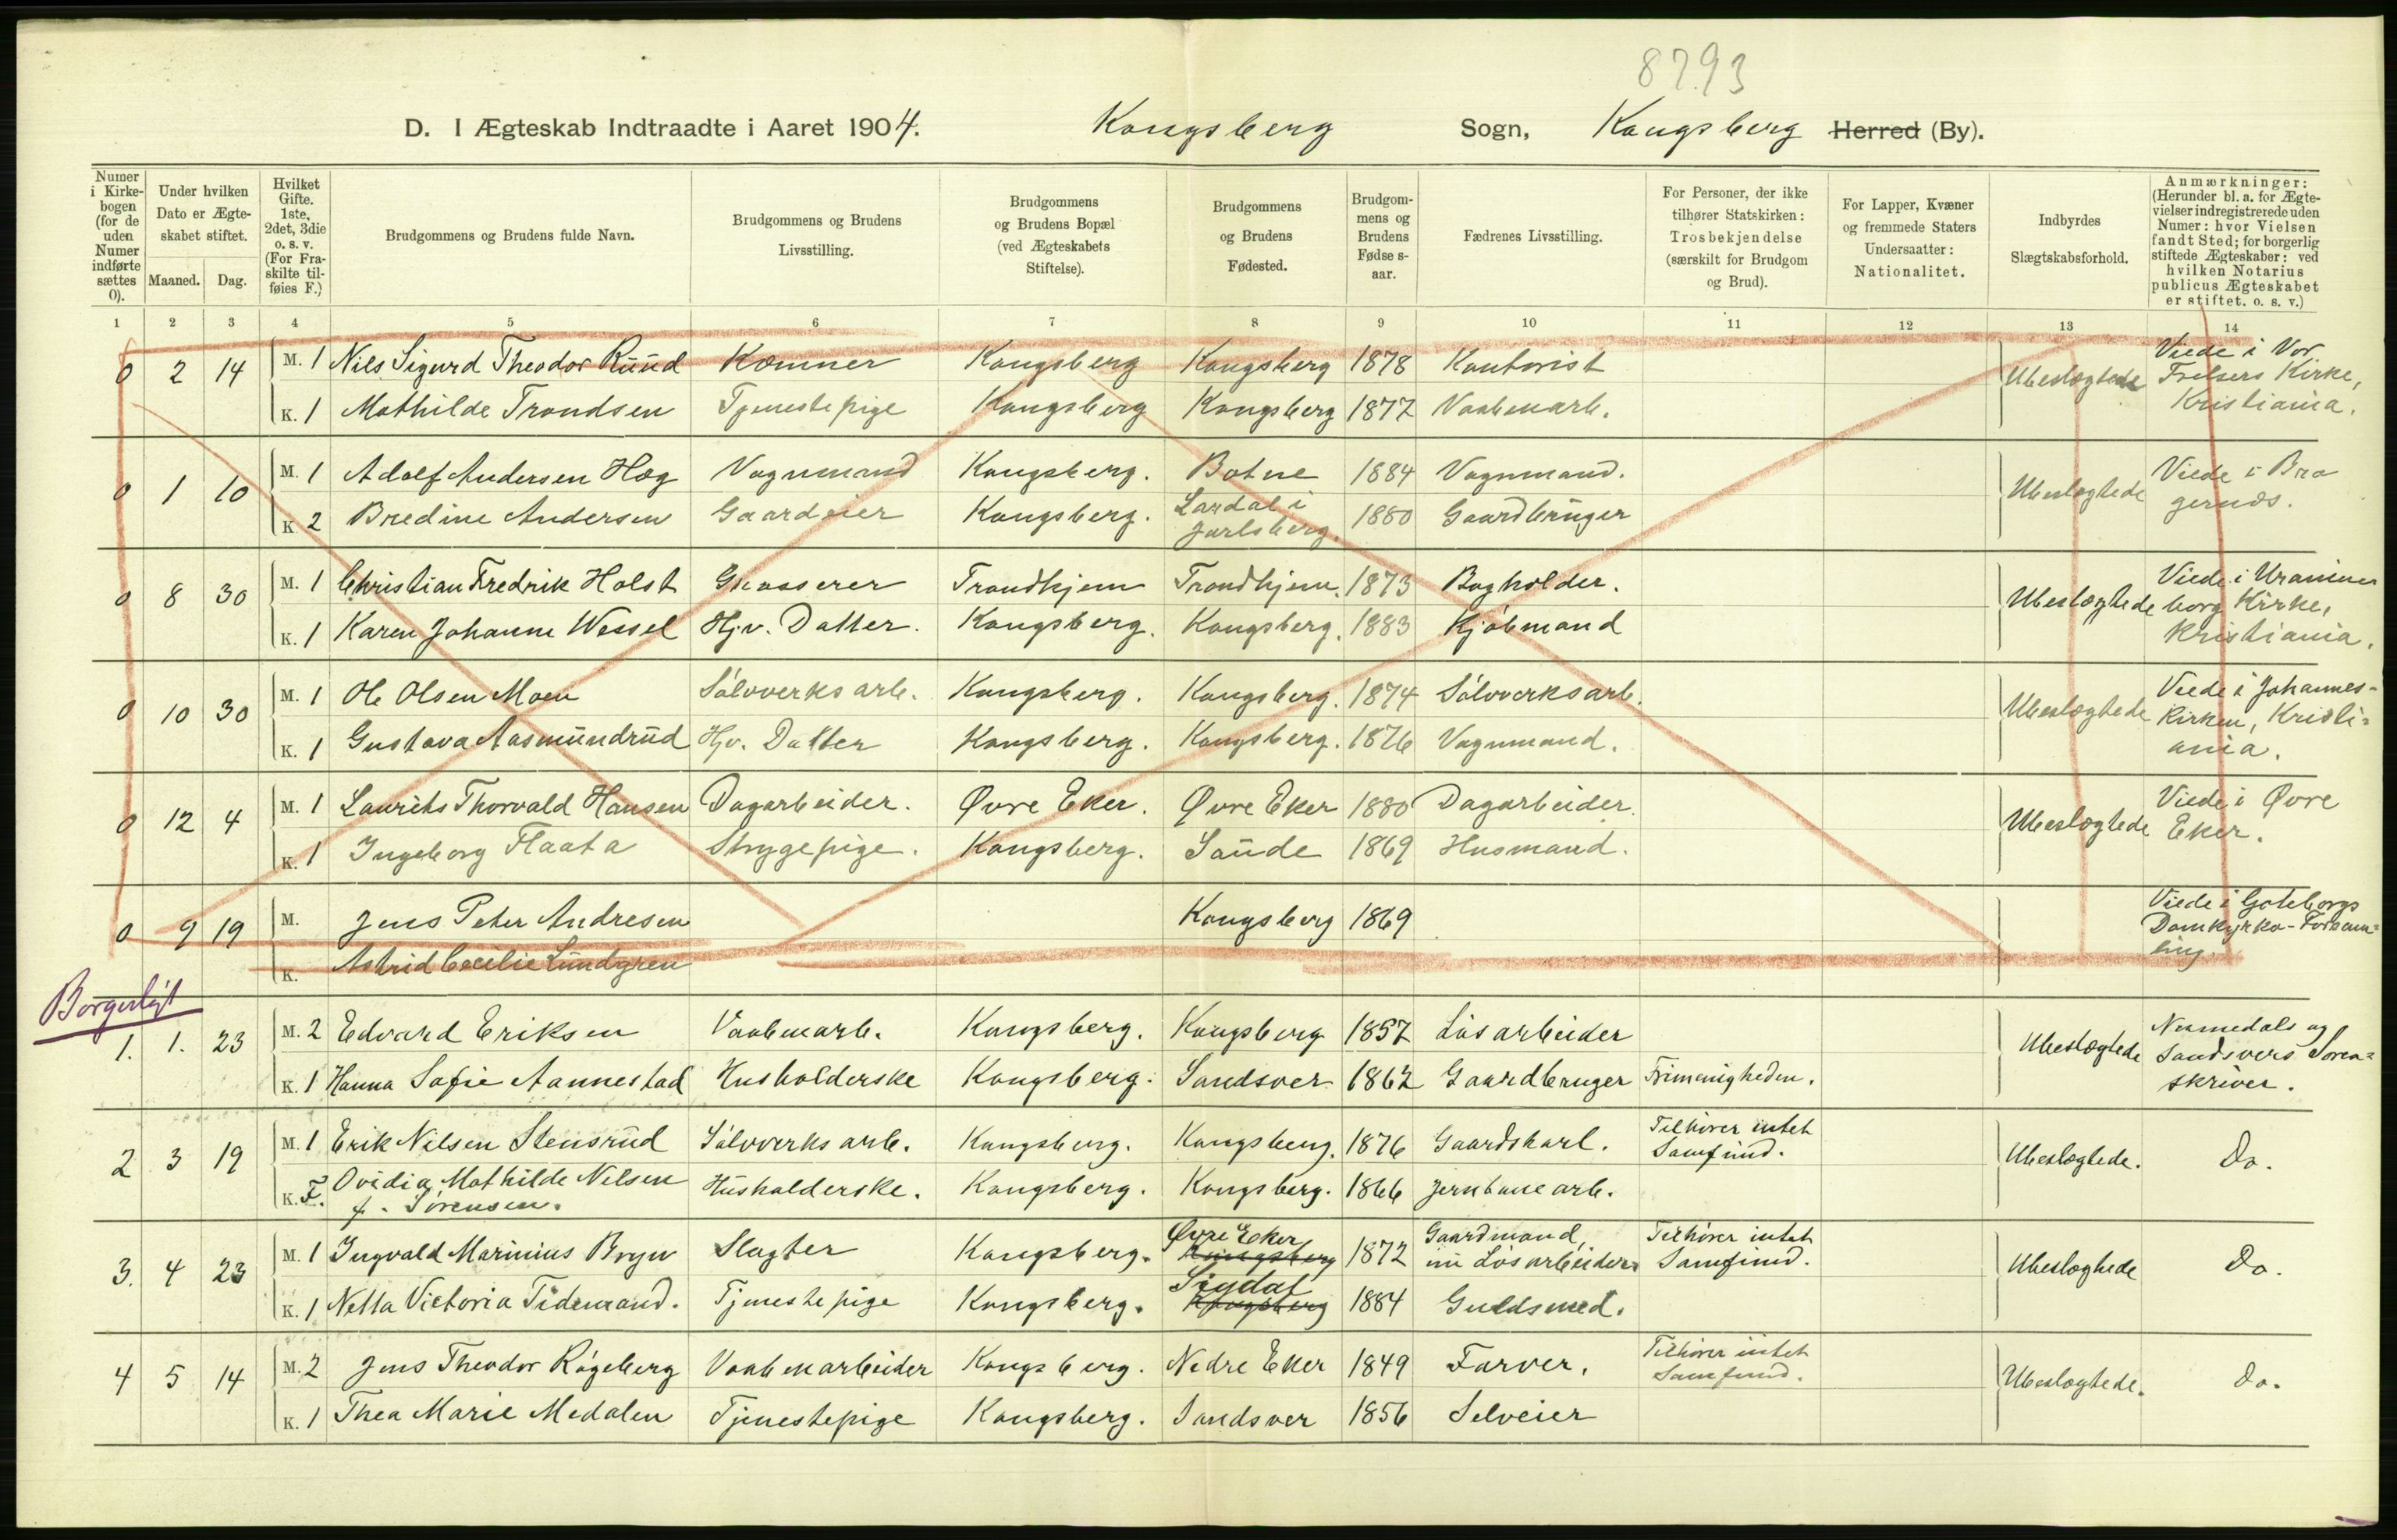 8793
D. I Ægteskab Indtraadte i Aaret 1904. Kongsberg Sogn, Kongsberg Herred (By).
Numer i Kirkebogen (for de uden Numer indførte sættes 0).
Under hvilken Dato er Ægteskabet stiftet.
Maaned. Dag.
Hvilket Gifte. 1ste, 2det, 3die o. s. v. (For Fraskilte tilføies F.)
Brudgommens og Brudens fulde Navn.
Brudgommens og Brudens Livsstilling.
Brudgommens og Brudens Bopæl (ved Ægteskabets Stiftelse).
Brudgommens og Brudens Fødested.
Brudgommens og Brudens Fødselsaar.
Fædrenes Livsstilling.
For Personer, der ikke tilhører Statskirken: Trosbekjendelse (særskilt for Brudgom og Brud).
For Lapper, Kvæner og fremmede Staters Undersaatter: Nationalitet.
Indbyrdes Slægtskabsforhold.
Anmærkninger: (Herunder bl. a. for Ægtevielser indregistrerede uden Numer: hvor Vielsen fandt Sted; for borgerlig stiftede Ægteskaber: ved hvilken Notarius publicus Ægteskabet er stiftet. o. s. v.)
1 2 3 4 5 6 7 8 9 10 11 12 13 14
0 2 14 M. 1 Nils Sigurd Theodor Ruud Kæmner Kongsberg Kongsberg 1878 Kontorist Ubeslægtede Viede i Vor Frelsers Kirke, Kristiania.
K. 1 Mathilde Trondsen Tjenestepige Kongsberg Kongsberg 1877 Vaabenarb.
0 1 10 M. 1 Adolf Andersen Hæg Vognmand Kongsberg. Botne 1884 Vognmand. Ubeslægtede Viede i Bragernæs.
K. 2 Bredine Andersen Gaardeier Kongsberg. Lardal i Jarlsberg. 1880 Gaardbruger
0 8 30 M. 1 Christian Fredrik Holst Grosserer Trondhjem Trondhjem. 1873 Bogholder. Ubeslægtede Viede i Uranienborg Kirke, Kristiania.
K. 1 Karen Johanne Wessel Hjv. Datter. Kongsberg. Kongsberg. 1883 Kjøbmand
0 10 30 M. 1 Ole Olsen Moen Sölvverksarb. Kongsberg. Kongsberg. 1874 Sölvverksarb. Ubeslægtede Viede i Johanneskirken, Kristiania.
K. 1 Gustava Aasmundrud Hjv. Datter Kongsberg. Kongsberg. 1876 Vognmand.
0 12 4 M. 1 Laurits Thorvald Hansen Dagarbeider. Øvre Eker. Øvre Eker 1880 Dagarbeider. Ubeslægtede Viede i Øvre Eker.
K. 1 Ingeborg Flaata Strygepige. Kongsberg. Sande 1869 Husmand.
0 9 19 M. Jens Peter Andresen Kongsberg 1869 Viede i Goteborgs Domkyrko-Forsamling.
K. Astrid Cecilie Lundgren
Borgerligt
1. 1. 23 M. 2 Edvard Eriksen Vaabenarb. Kongsberg. Kongsberg 1857 Løsarbeider Ubeslægtede Numedals og Sandsvers Sorenskriver.
K. 1 Hanna Sofie Aannestad Husholderske Kongsberg. Sandsver 1862 Gaardbruger Frimenigheden.
2 3 19 M. 1 Erik Nilsen Stensrud Sölvverksarb. Kongsberg. Kongsberg. 1876 Gaardskarl. Tilhører intet Samfund. Ubeslægtede. Do.
K. F. Ovidia Mathilde Nilsen f. Sørensen. Husholderske. Kongsberg. Kongsberg. 1866 Jernbanearb.
3. 4 23 M. 1 Ingvald Marinius Bryn Slagter Kongsberg. Øvre Eker Kongsberg 1872 Gaardmand, nu Løsarbeider. Tilhører intet Samfund. Ubeslægtede Do.
K. 1 Netta Victoria Tidemand. Tjenestepige Kongsberg. Sigdal Kongsberg 1884 Guldsmed.
4 5 14 M. 2 Jens Theodor Røgeberg Vaabenarbeider Kongsberg. Nedre Eker 1849 Farver. Tilhører intet Samfund. Ubeslægtede. Do.
K. 1 Thea Marie Medalen Tjenestepige Kongsberg. Sandsver 1856 Selveier